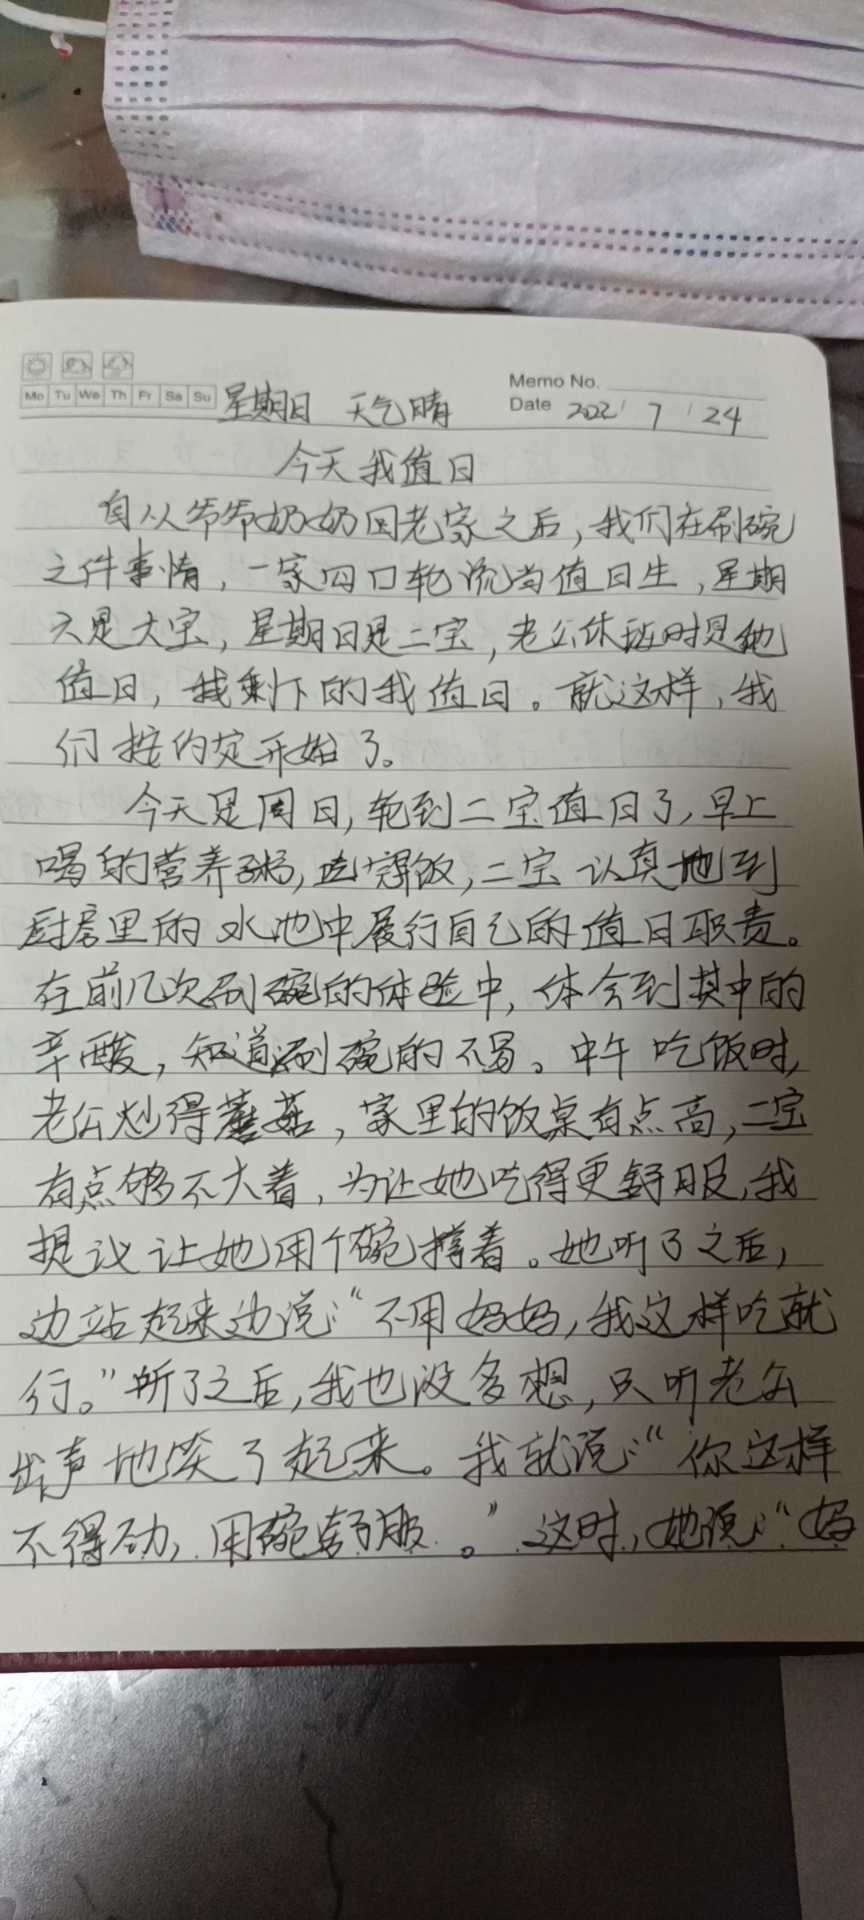 Mo Tu We Th Fr Sa Su 星期日 天气晴 Memo No.
Date 2022 / 7 / 24
今天我值日
自从爷爷奶奶回老家之后，我们在刷碗
之件事情，一家四口轮流当值日生，星期
六是大宝，星期日是二宝，老公休班时是他
值日，我剩下的我值日。就这样，我
们按约定开始了。
今天是周日，轮到二宝值日了，早上
喝的营养粥，吃完饭，二宝认真地到
厨房里的水池中履行自己的值日职责。
在前几次刷碗的体验中，体会到其中的
辛酸，知道刷碗的不易。中午吃饭时，
老公炒得蘑菇，家里的饭桌有点高，二宝
有点够不大着，为让她吃得更舒服，我
提议让她用个碗撑着。她听了之后，
边站起来边说：“不用妈妈，我这样吃就
行。”听了之后，我也没多想，只听老公
出声地笑了起来。我就说：“你这样
不得劲，用碗舒服。”这时，她说：“妈